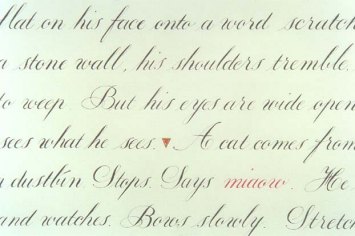 flat on his face onto a word scratch
a stone wall, his shoulders tremble.
to weep. But his eyes are wide open
sees what he sees. A cat comes from
a dustbin Stops. Says miaow. He
and watches. Bows slowly. Stretch